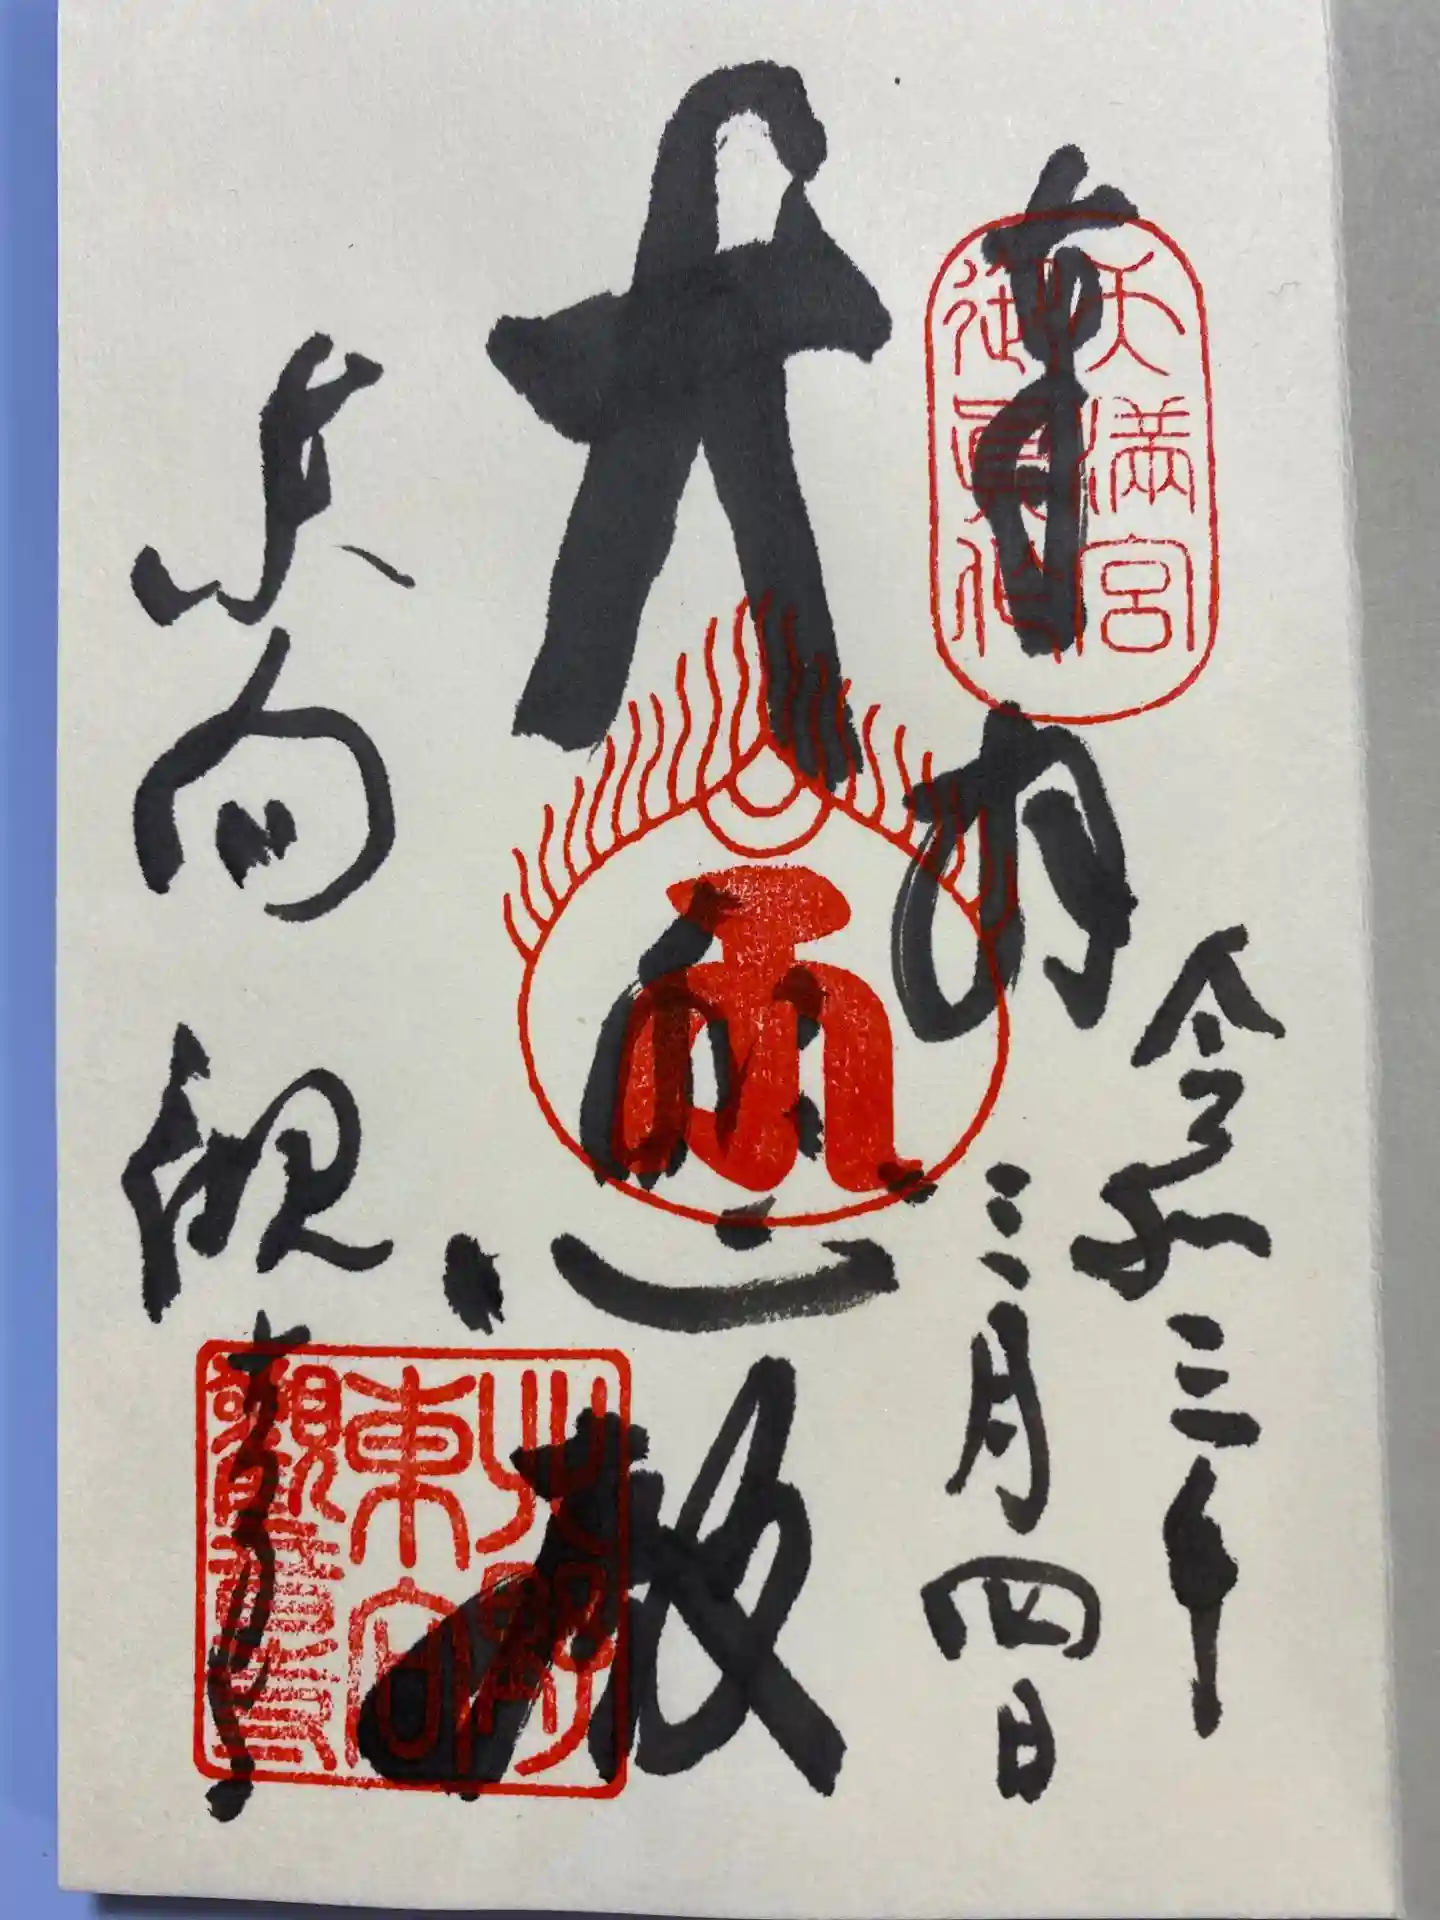 奉拝
天満宮
御眞作
令和三年
三月四日
大悲殿
東向観音寺
北野
東向
觀音寺